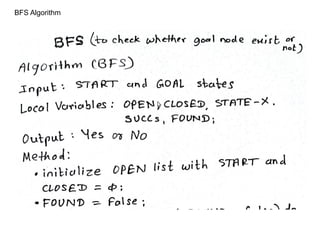 BFS Algorithm
BFS (to check whether goal node exist or not)
Algorithm (BFS)
Input : START and GOAL states
Local Variables : OPEN, CLOSED, STATE-X,
SUCCs, FOUND;
Output : Yes or No
Method:
• initialize OPEN list with START and
CLOSED = Φ;
• FOUND = false;